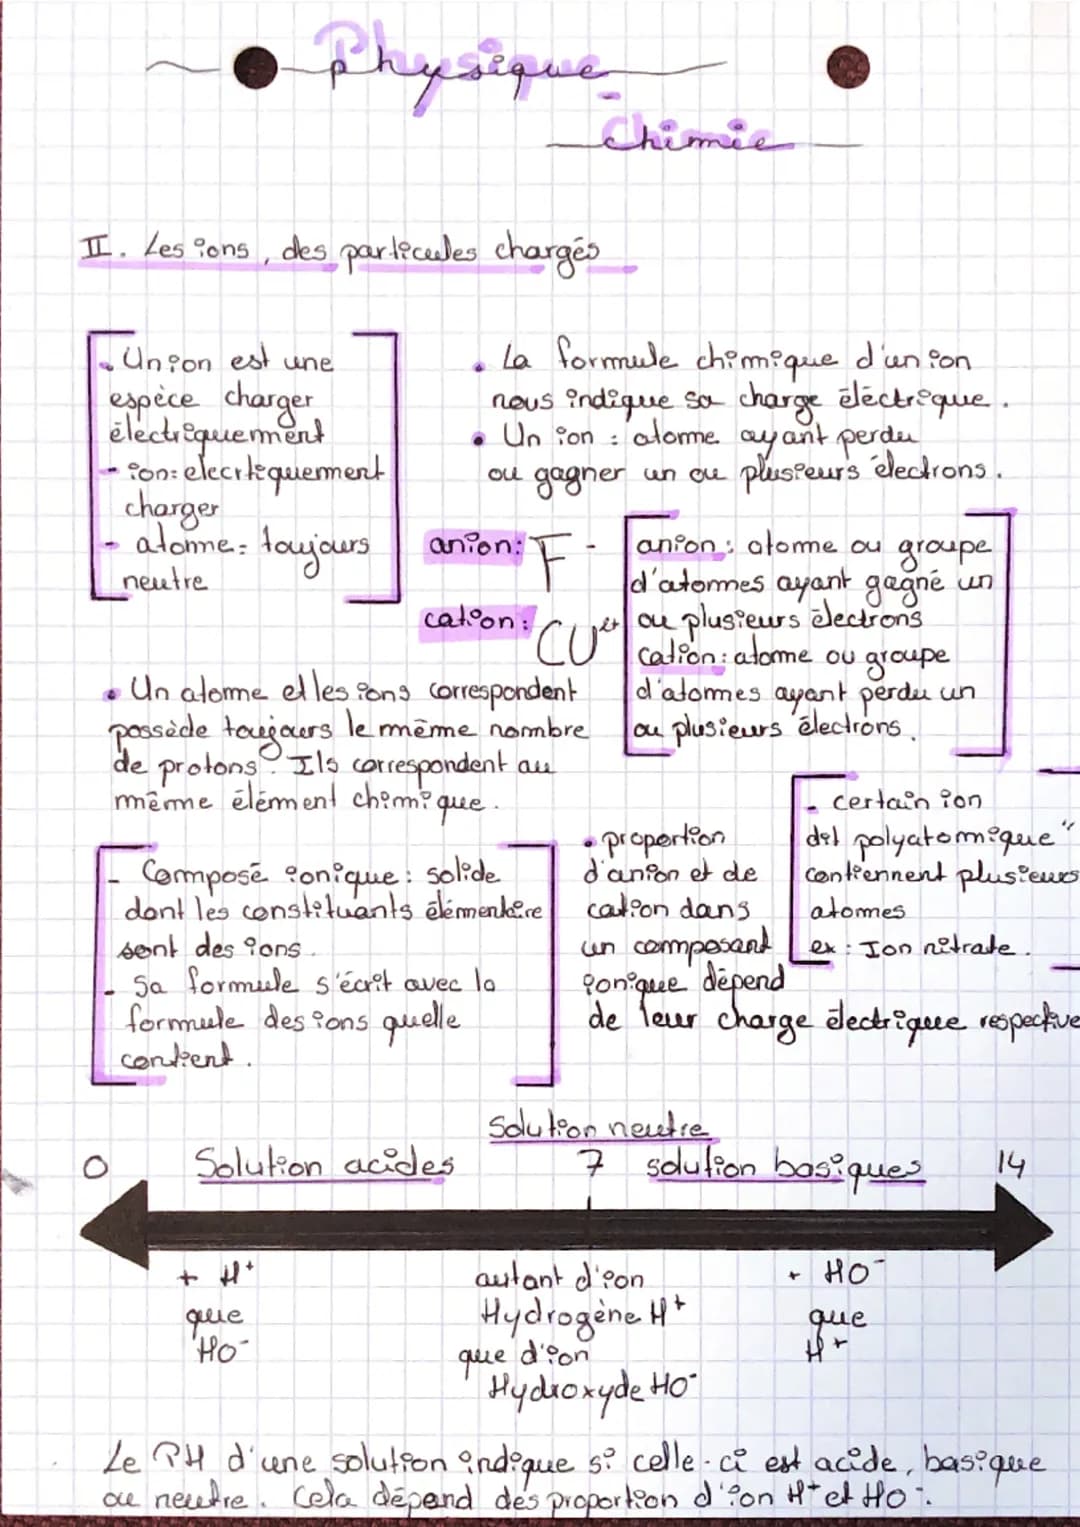 Physique
-
Chimie
II. Les ions, des particules chargés
- Un ion est une
espèce charger
électriquement
- ion: elecrtiquement
charger
- atome = toujours
neutre
• La formule chimique d'un ion
nous indique sa charge éléctrique.
• Un ion : atome ayant perdu
ou gagner un ou plusieurs électrons.
anion: F-
cation: CU2+
anion: atome ou groupe
d'atomes ayant gagné un
ou plusieurs électrons
cation: atome ou groupe
d'atomes ayant perdu un
ou plusieurs électrons.
• Un atome et les ions correspondent
possède toujours le même nombre
de protons. Ils correspondent au
même élément chimique.
- Composé ionique: solide
dont les constituants élémentaire
sont des ions.
- Sa formule s'écrit avec la
formule des ions quelle
contient.
• proportion
d'anion et de
cation dans
un composant
ionique dépend
de leur charge électrique respective
- certain ion
dit polyatomique"
contiennent plusieurs
atomes
ex: Ion nitrate.
Solution neutre
0 Solution acides 7 solution basiques 14
+ H+
que
HO-
autant d'ion
Hydrogène H+
que d'ion
Hydroxyde HO-
+ HO-
que
H+
Le PH d'une solution indique si celle-ci est acide, basique
ou neutre. Cela dépend des proportion d'ion H+ et HO-.